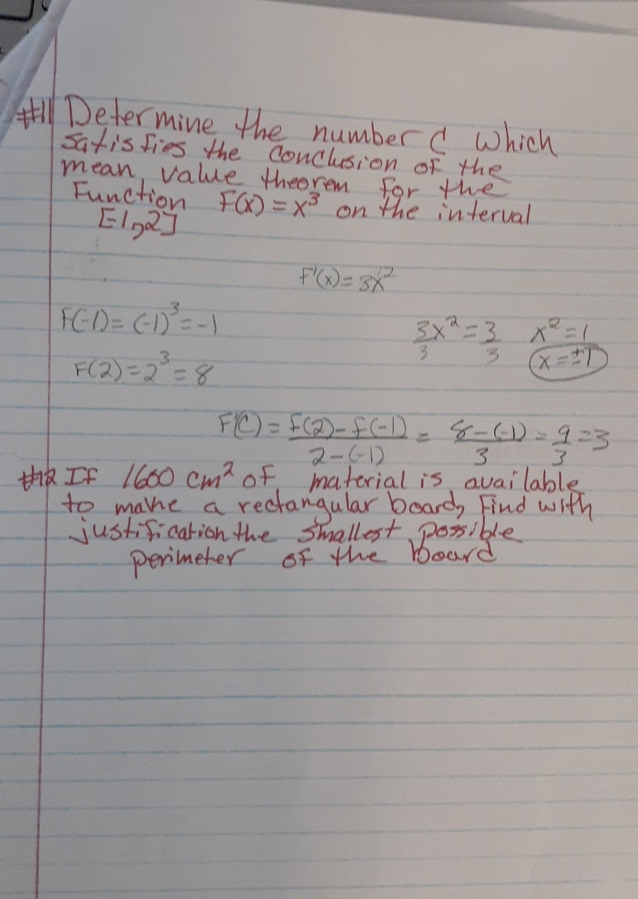 #11 Determine the number C which
satisfies the conclusion of the
mean value theorem for the
Function F(x) = x³ on the interval
[-1,2]
F'(x) = 3x²
F(-1) = (-1)³ = -1
3x²/3 = 3/3 x² = 1
F(2) = 2³ = 8
x = ±1
F'(C) = f(2) - f(-1) / 2 - (-1) = 8 - (-1) / 3 = 9/3 = 3
#12 If 1600 cm² of material is available
to make a rectangular board, Find with
justification the smallest possible
perimeter of the board